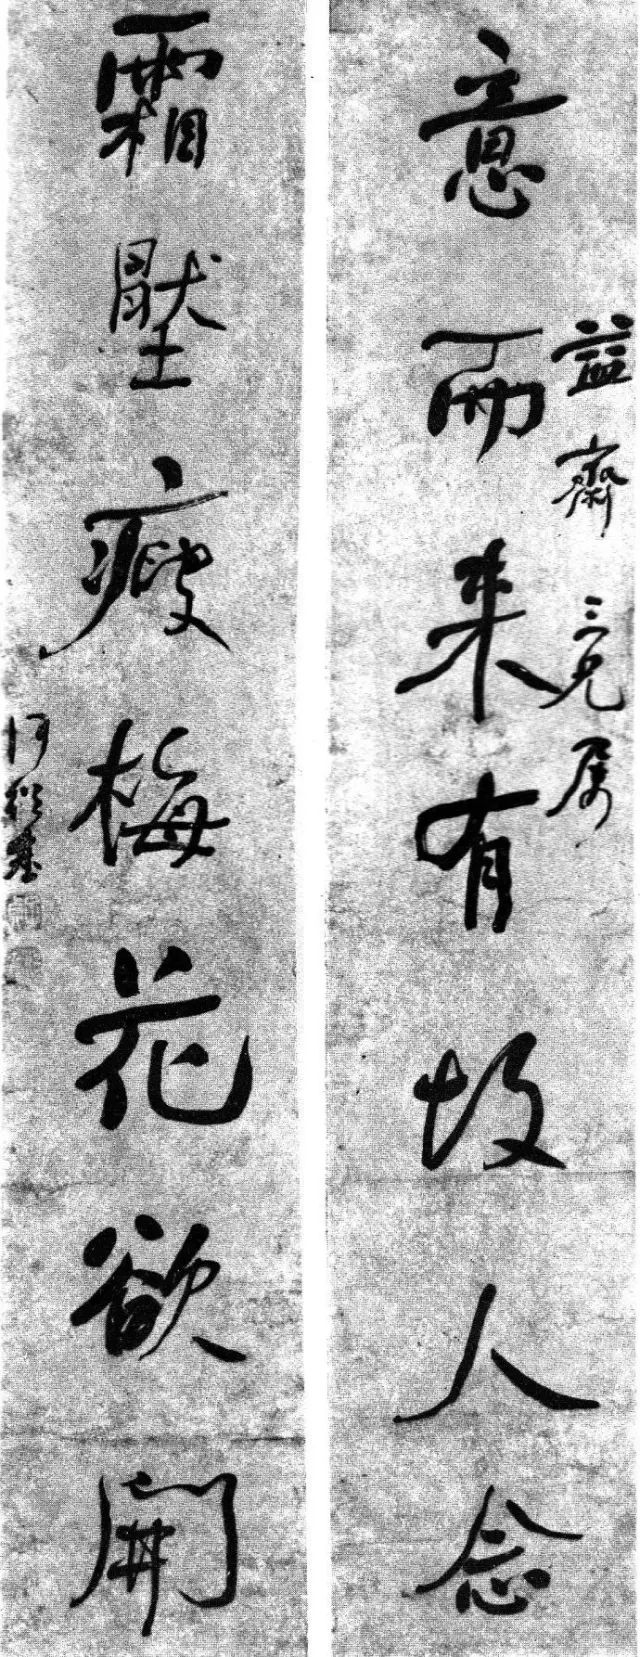 意而来有故人念
益齋三兄属
霜壓瘦梅花欲開
何紹基